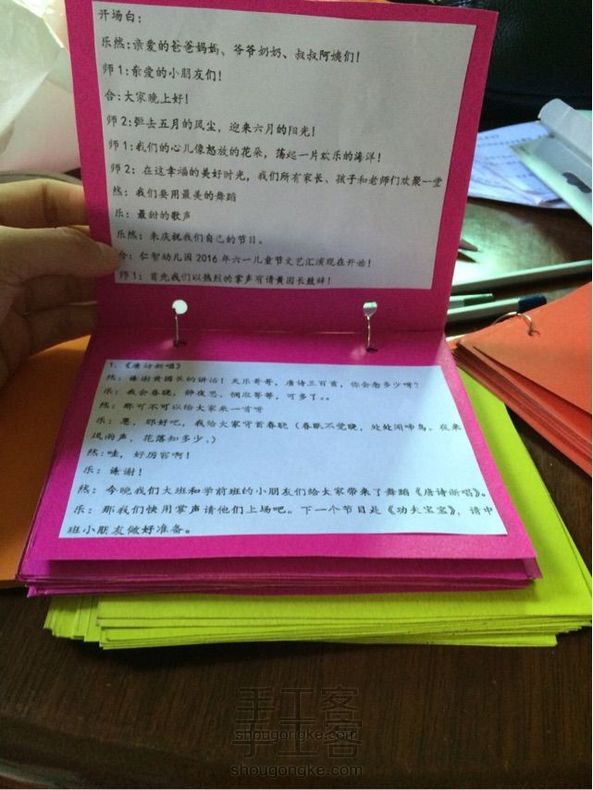 开场白:
乐然:亲爱的爸爸妈妈、爷爷奶奶、叔叔阿姨们!
师1:亲爱的小朋友们!
合:大家晚上好!
师2:踏去五月的风尘,迎来六月的阳光!
师1:我们的心儿像怒放的花朵,荡起一片欢乐的海洋!
师2:在这幸福的美好时光,我们所有家长、孩子和老师们欢聚一堂
然:我们要用最美的舞蹈
乐:最甜的歌声
乐然:来庆祝我们自己的节日。
合:仁智幼儿园2016年六一儿童节文艺汇演现在开始!
师1:首先我们以热烈的掌声有请黄园长致辞!
1.《唐诗新唱》
然:谢谢黄园长的讲话!天乐哥哥,唐诗三百首,你会念多少呀?
乐:我会春晓,静夜思,悯农等等,可多了。。
然:那可不可以给大家来一首呀
乐:恩,那好吧,我给大家背首春晓(春眠不觉晓,处处闻啼鸟、夜来
风雨声、花落知多少。)
然:哇,好厉害啊!
乐:谢谢!
然:今晚我们大班和学前班的小朋友们给大家带来了舞蹈《唐诗新唱》。
乐:那我们快用掌声请他们上场吧。下一个节目是《功夫宝宝》,请中
班小朋友做好准备。
手工客
shougongke.com
手工客
shougongke.com